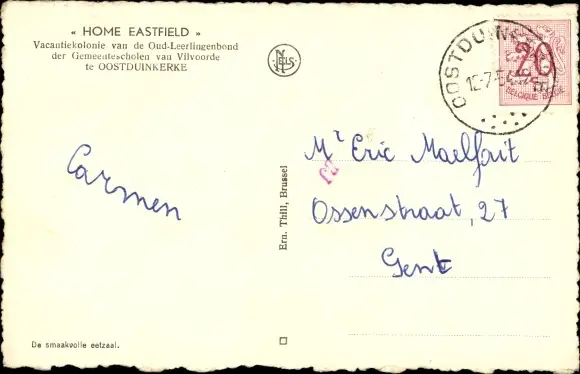 « HOME EASTFIELD »
Vacantiekolonie van de Oud-Leerlingenbond
der Gemeentescholen van Vilvoorde
te OOSTDUINKERKE
NELS
20
BELGIQUE BELGIE
OOSTDUINK
Mr Eric Maelfait
Ossenstraat, 27
Gent
Carmen
Ern. Thill, Brussel
De smaakvolle eetzaal.